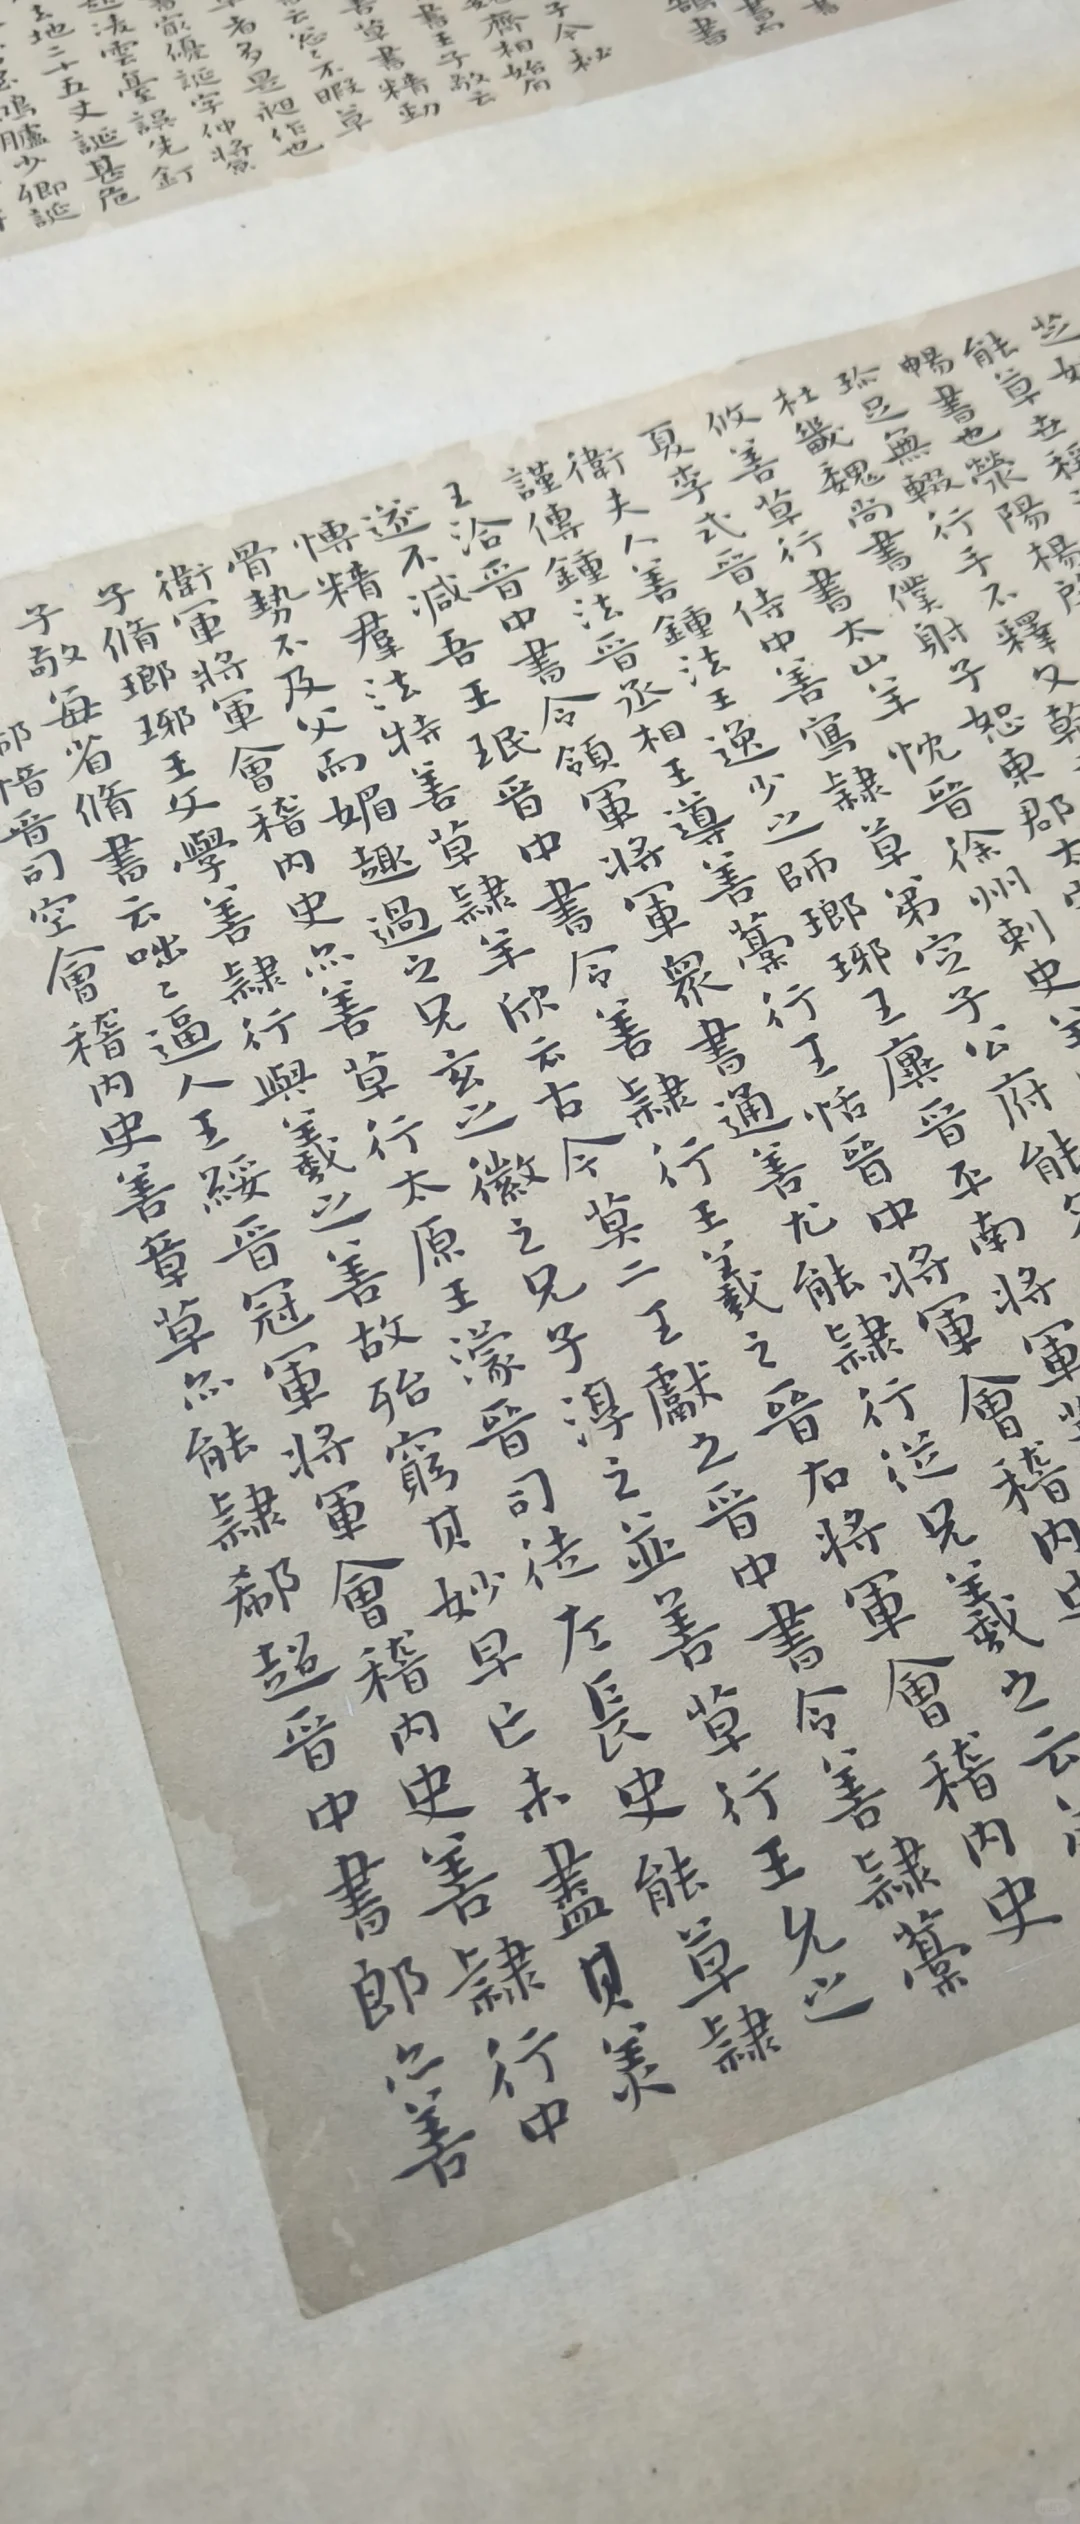 鵠書
子令秘
齊相
書王子敬云
善草書精勤
云忩〻不暇草
者多是昶作也
優誕字仲將京
凌雲臺誤先釘
地二十五丈誕甚危
鴻臚少卿誕
芝
能草世稱
暢書也滎陽楊
珍足無輟行手不釋又乾
杜畿魏尚書僕射子恕東郡太守
攸善草行書太山羊忱晉徐州刺史
夏李式晉侍中善寫隸草弟定子公府能
衛夫人善鍾法王逸少之師瑯琊王廙晉平南將軍
謹傳鍾法晉丞相王導善藁行王恬晉中將軍會稽內史
王洽晉中書令領軍將軍衆書通善尤能隸行從兄羲之云
述不減吾王珉晉中書令善隸行王羲之晉右將軍會稽內史
博精羣法特善草隸羊欣云古今莫二王獻之晉中書令善隸藁
骨勢不及父而媚趣過之兄玄之徽之兄子淳之並善草行王允之
衛軍將軍會稽內史亦善草行太原王濛晉司徒左長史能草隸
子脩瑯琊王文學善隸行與羲之善故殆窮其妙早亡未盡其美
子敬每省脩書云咄〻逼人王綏晉冠軍將軍會稽內史善隸行中
郗愔晉司空會稽內史善章草亦能隸郗超晉中書郎亦善